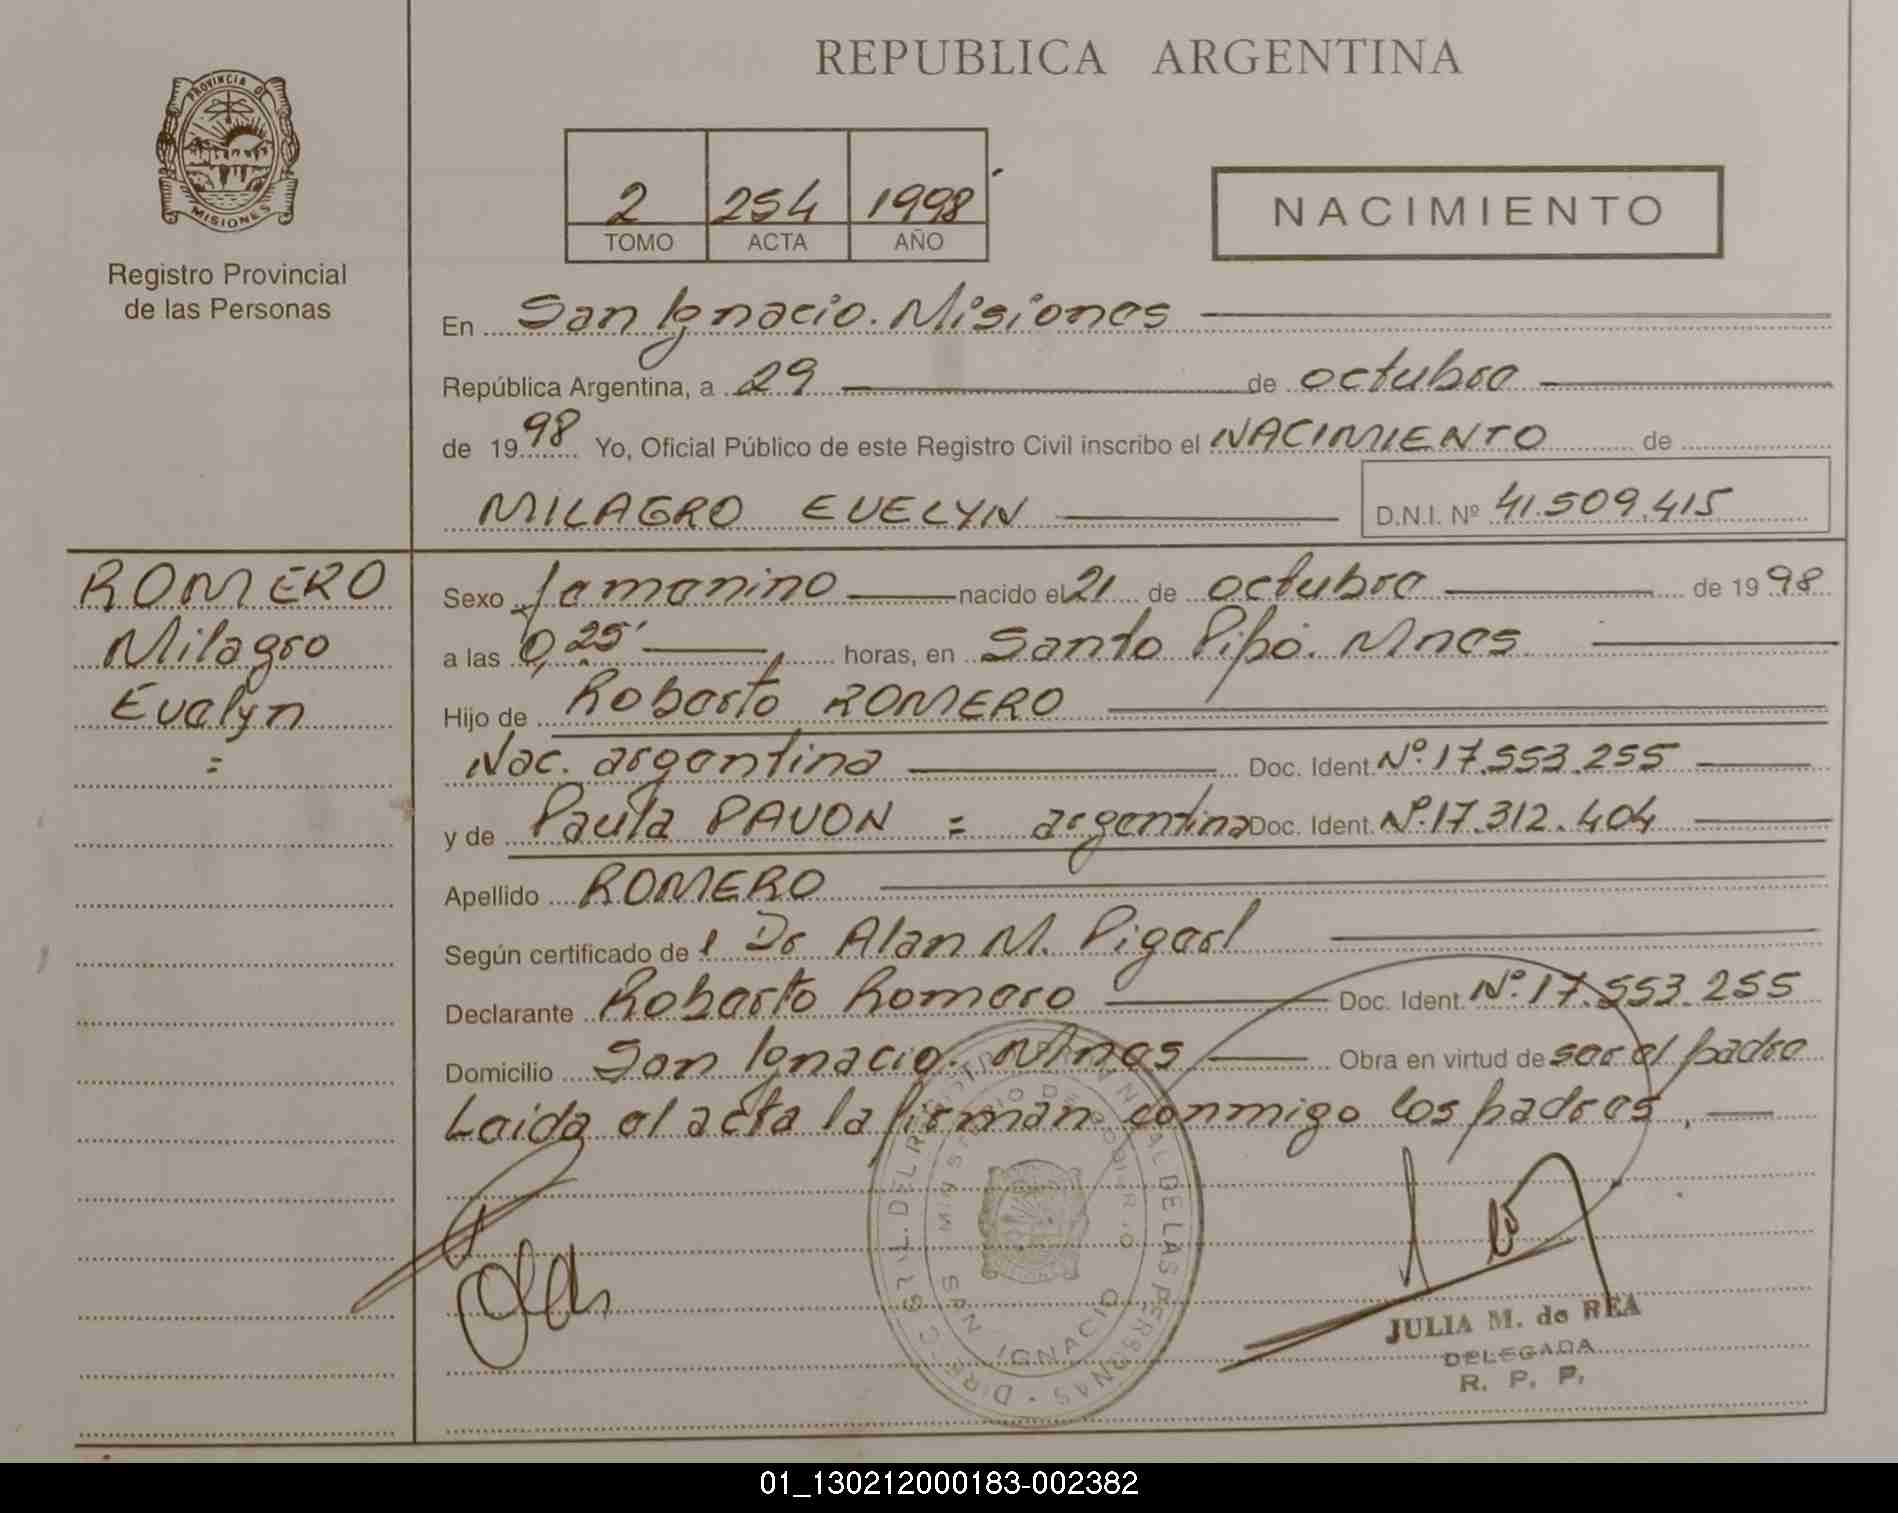 REPUBLICA ARGENTINA
PROVINCIA DE
MISIONES
Registro Provincial
de las Personas
2 254 1998
TOMO ACTA AÑO
NACIMIENTO
En San Ignacio. Misiones
República Argentina, a 29 de octubre
de 1998 Yo, Oficial Público de este Registro Civil inscribo el NACIMIENTO de
MILAGRO EVELYN D.N.I. Nº 41.509.415
ROMERO
Milagro
Evelyn
=
Sexo femenino nacido el 21 de octubre de 1998
a las 0,25' horas, en Santo Pipó. Mnes
Hijo de Roberto ROMERO
Nac. argentina Doc. Ident. Nº 17.553.255
y de Paula PAVON = argentina Doc. Ident. Nº 17.312.404
Apellido ROMERO
Según certificado de l Dr Alan M. Pigerl
Declarante Roberto Romero Doc. Ident. Nº 17.553.255
Domicilio San Ignacio. Mnes Obra en virtud de ser el padre
Leida el acta la firman conmigo los padres,
DEL REGISTRO PROVINCIAL DE LAS PERSONAS
MINISTERIO DE GOBIERNO
SAN IGNACIO
JULIA M. de REA
DELEGADA
R. P. P.
01_130212000183-002382